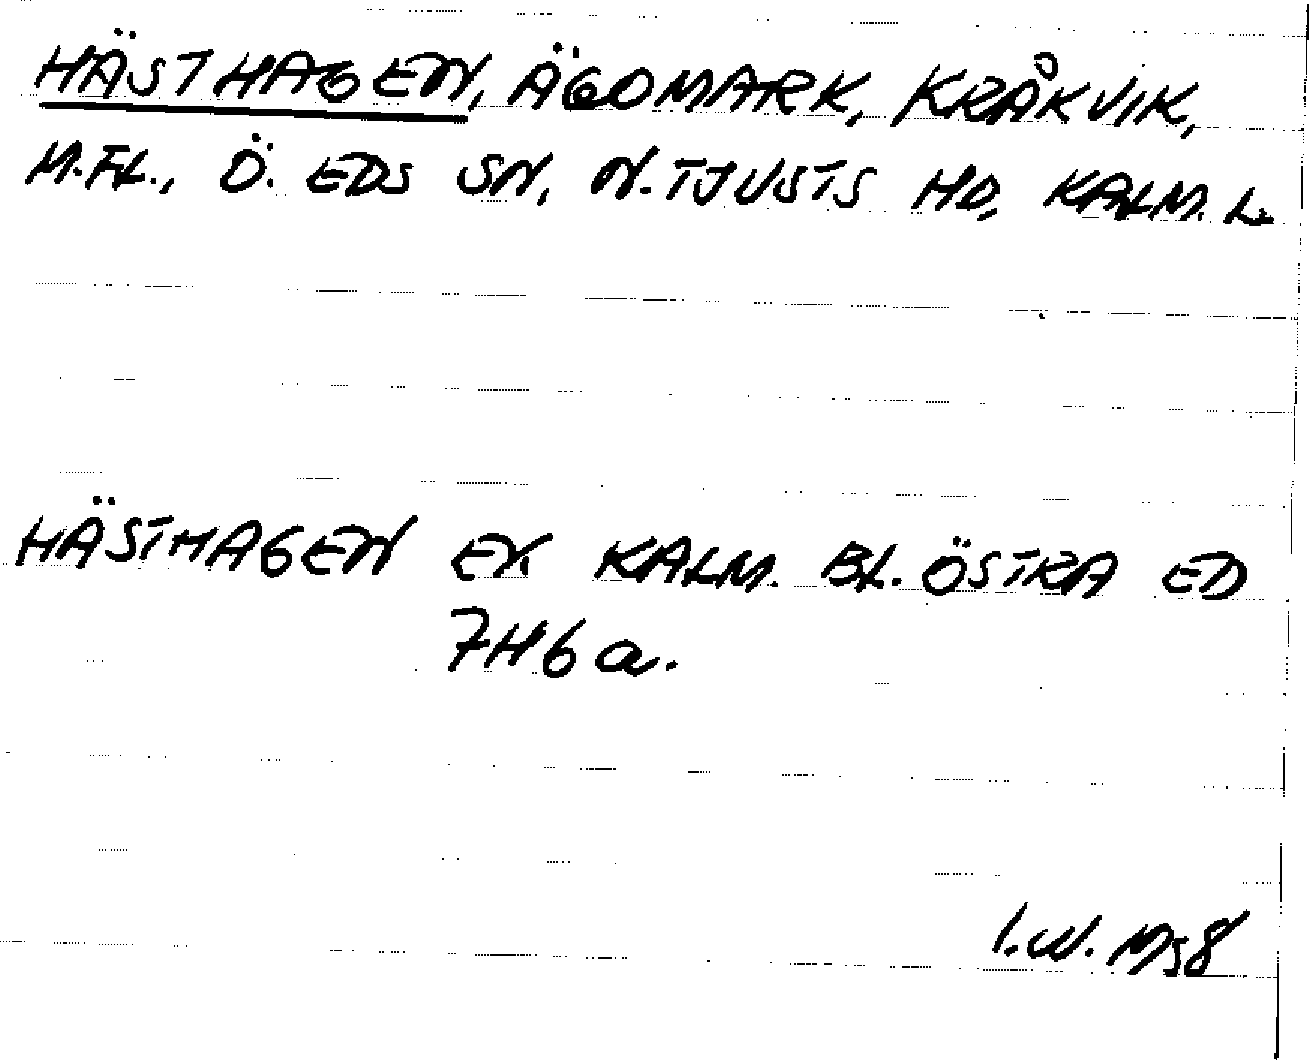 HÄSTHAGEN, ÄGOMARK, KRÅKVIK,
M.FL., Ö. EDS SN, N. TJUSTS HD, KALM. L.
HÄSTHAGEN EK KALM. BL. ÖSTRA ED
7H6a.
I.W.